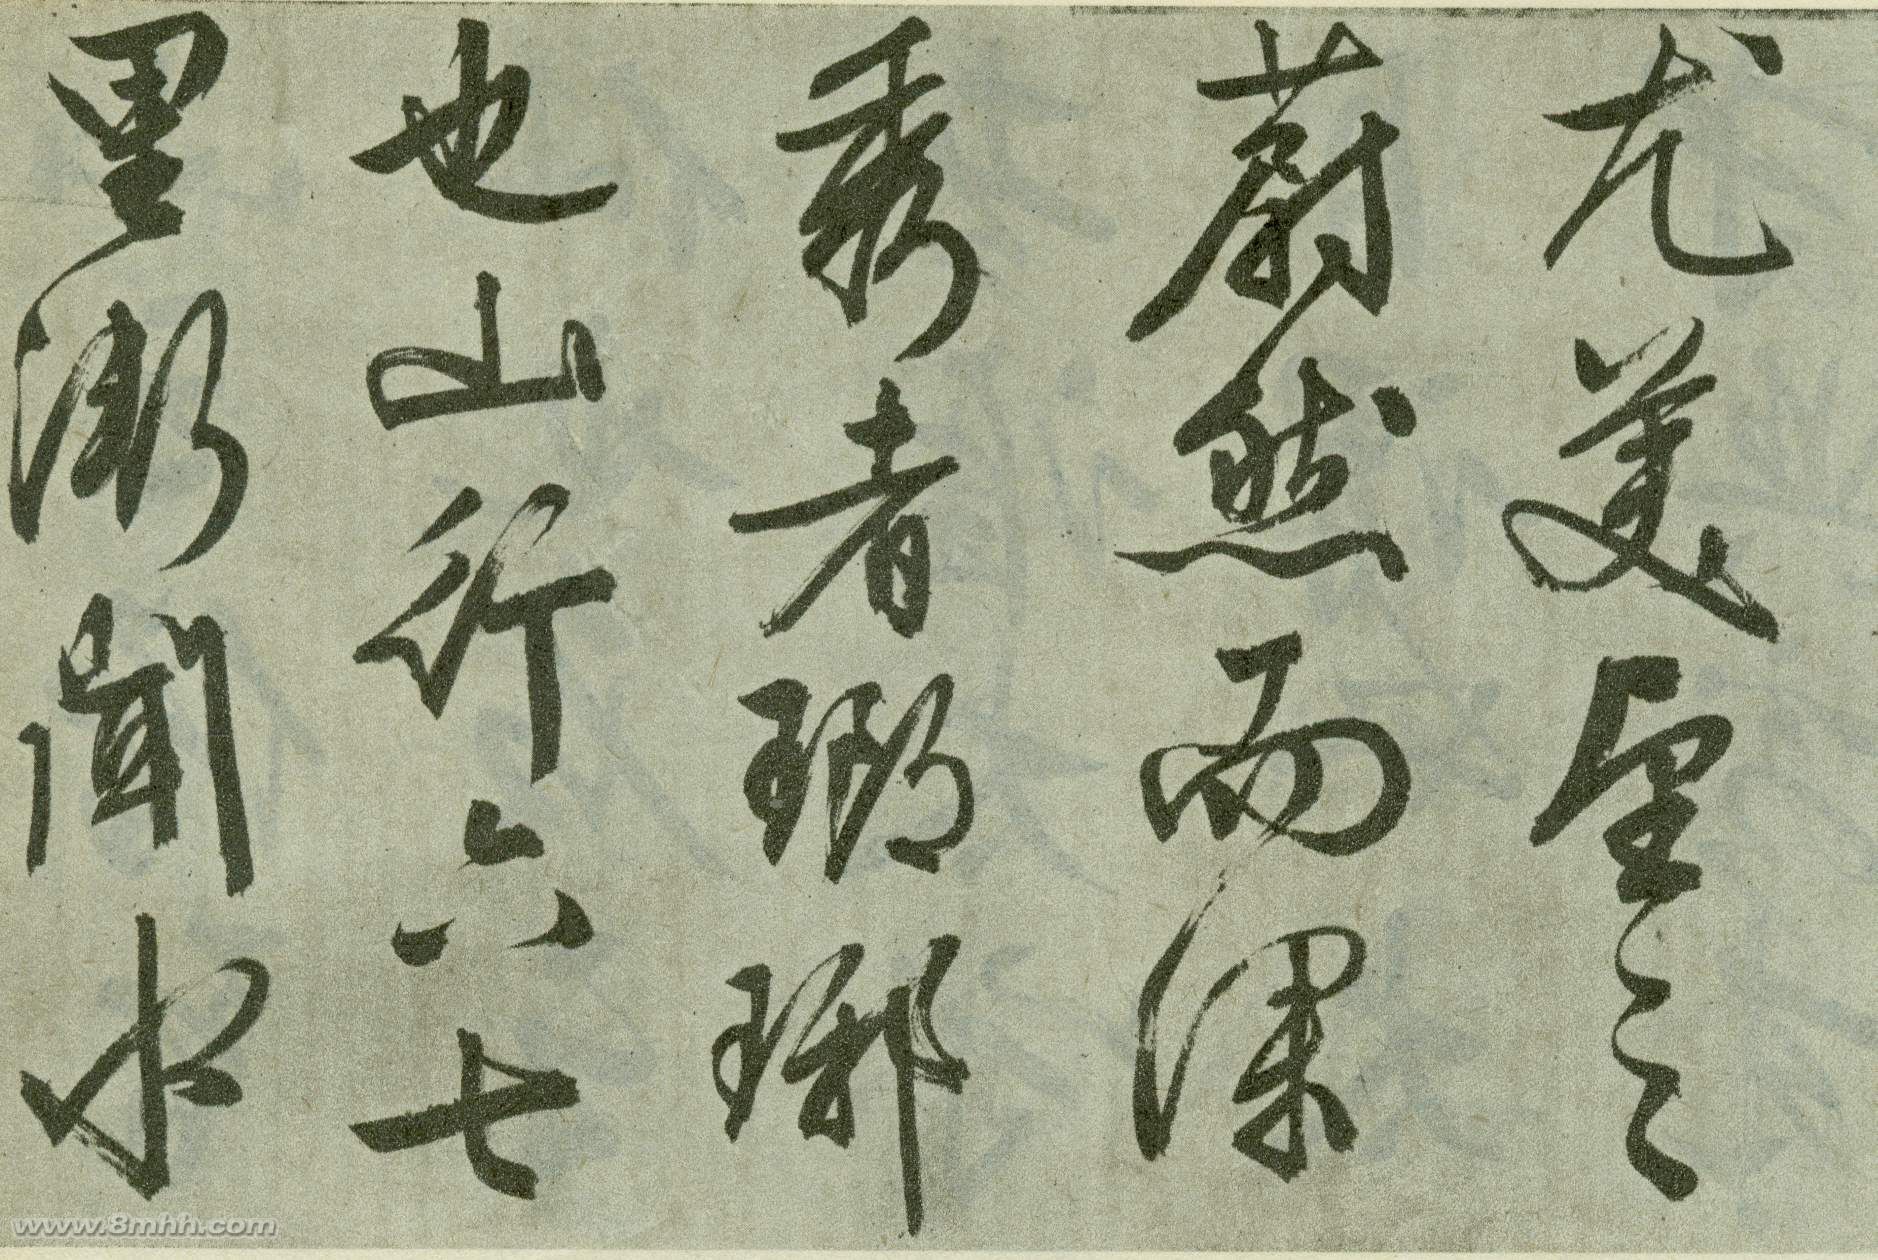 尤美望之
蔚然而深
秀者瑯琊
也山行六七
里漸聞水
www.8mhh.com